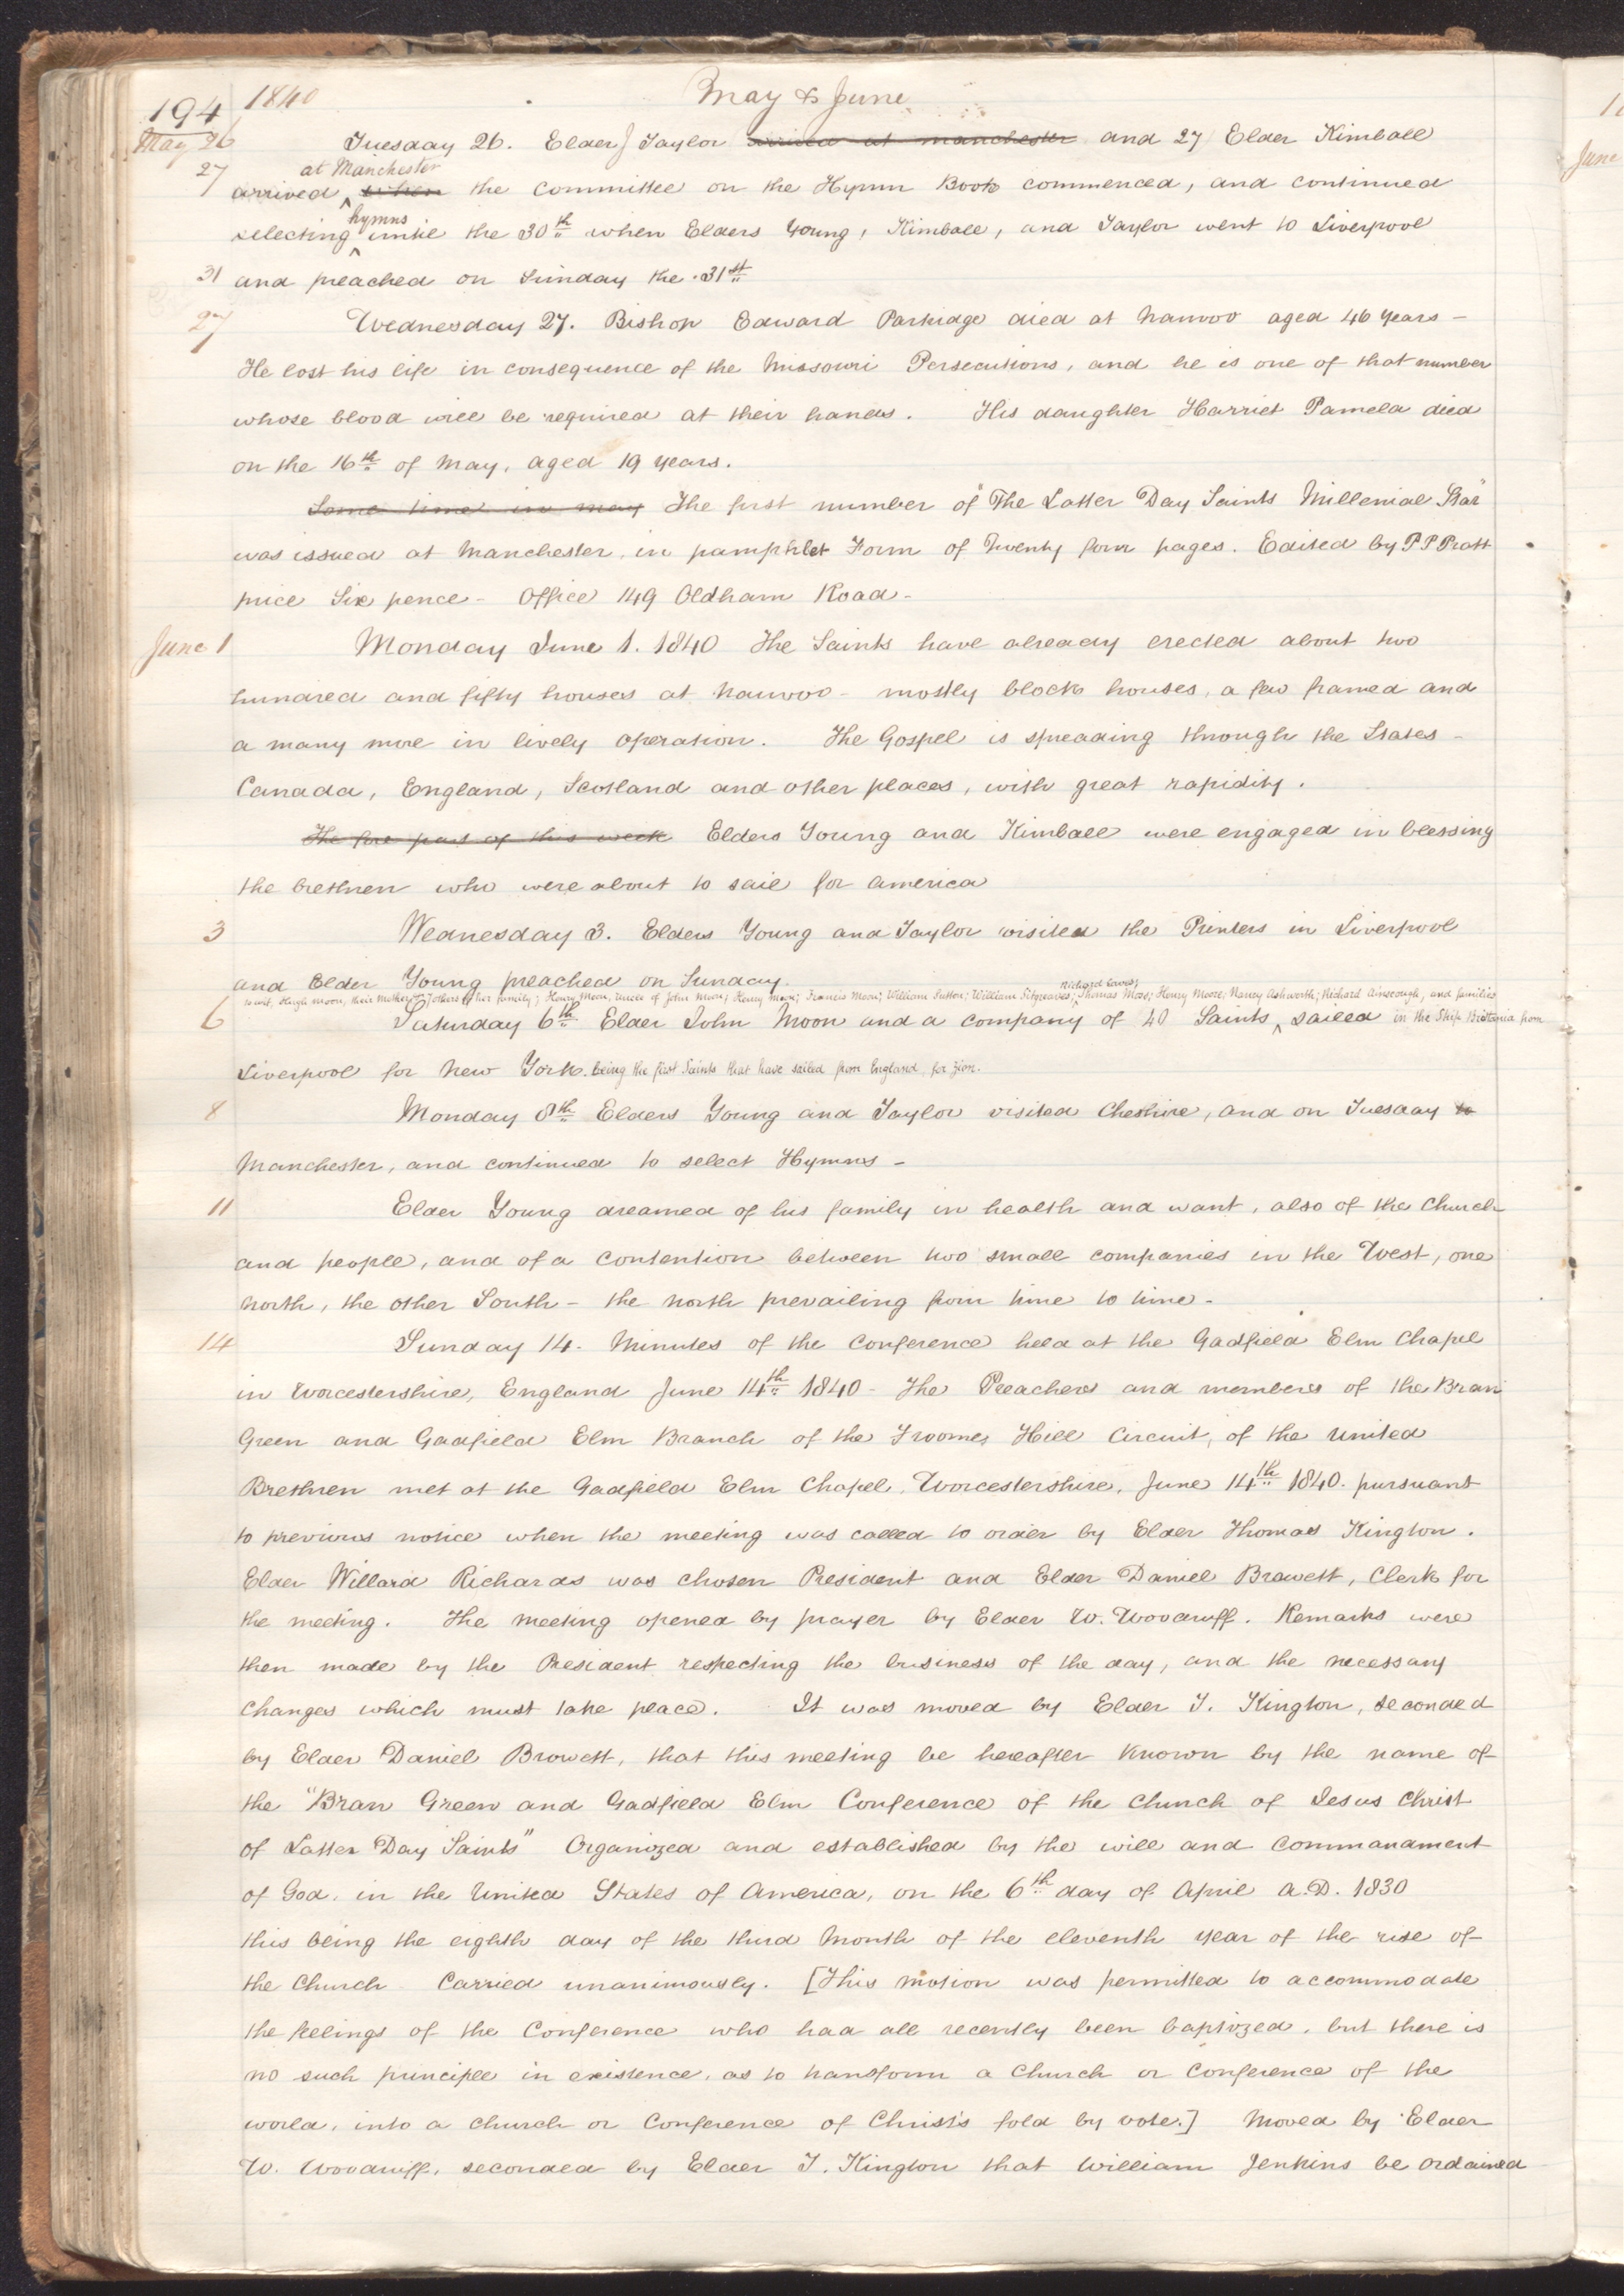 194 1840 May & June
May 26 Tuesday 26. Elder J Taylor arrived at manchester and 27 Elder Kimball
at Manchester
27 arrived ^ when the committee on the Hymn Book commenced, and continued
hymns
selecting ^ until the 30th when Elders Young, Kimball, and Taylor went to Liverpool
31 and preached on Sunday the 31st
27 Wednesday 27. Bishop Edward Partridge died at Nauvoo aged 46 years –
He lost his life in consequence of the Missouri Persecutions, and he is one of that number
whose blood will be required at their hands. His daughter Harriet Pamela died
on the 16th of May, aged 19 years.
Some time in may The first number of "The Latter Day Saints Millenial Star"
was issued at Manchester, in pamphlet Form of Twenty four pages. Edited by P P Pratt
price Six pence – Office 149 Oldham Road –
June 1 Monday June 1. 1840 The Saints have already erected about two
hundred and fifty houses at Nauvoo – mostly block houses, a few framed and
a many more in lively operation. The Gospel is spreading through the States –
Canada, England, Scotland and other places, with great rapidity.
The fore part of this week Elders Young and Kimball were engaged in blessing
the brethren who were about to sail for America
3 Wednesday 3. Elders Young and Taylor visited the Printers in Liverpool
and Elder Young preached on Sunday.
Richard Eaves;
to wit, Hugh Moon, their Mother & 7 others of her family; Henry Moon, Uncle of John Moon; Henry Moon; Francis Moon; William Sutton; William Sitgreaves; Thomas Moss; Henry Moore; Nancy Ashworth; Richard Ainscough, and families
6 Saturday 6th Elder John Moon and a company of 40 Saints ^ sailed in the Ship Brittania from
Liverpool for New York. being the first Saints that have sailed from England for Zion.
8 Monday 8th Elders Young and Taylor visited Cheshire, and on Tuesday to
Manchester, and continued to select Hymns –
11 Elder Young dreamed of his family in health and want, also of the Church
and people, and of a contention between two small companies in the West, one
North, the other South – the North prevailing from time to time –
14 Sunday 14. Minutes of the Conference held at the Gadfield Elm Chapel
in Worcestershire, England June 14th 1840 – The Preachers and members of the Bran
Green and Gadfield Elm Branch of the Froomes Hill Circuit, of the United
Brethren met at the Gadfield Elm Chapel, Worcestershire, June 14th 1840. pursuant
to previous notice when the meeting was called to order by Elder Thomas Kington.
Elder Willard Richards was chosen President and Elder Daniel Browett, Clerk for
the meeting. The meeting opened by prayer by Elder W. Woodruff. Remarks were
then made by the President respecting the business of the day, and the necessary
changes which must take place. It was moved by Elder T. Kington, seconded
by Elder Daniel Browett, that this meeting be hereafter known by the name of
the "Bran Green and Gadfield Elm Conference of the Church of Jesus Christ
of Latter Day Saints" Organized and established by the will and commandment
of God, in the United States of America, on the 6th day of April A.D. 1830
this being the eighth day of the third month of the eleventh year of the rise of
the Church Carried unanimously. [This motion was permitted to accommodate
the feelings of the Conference who had all recently been baptized, but there is
no such principle in existence, as to transform a Church or Conference of the
world, into a Church or Conference of Christ's fold by vote.] Moved by Elder
W. Woodruff, seconded by Elder T. Kington that William Jenkins be ordained
June